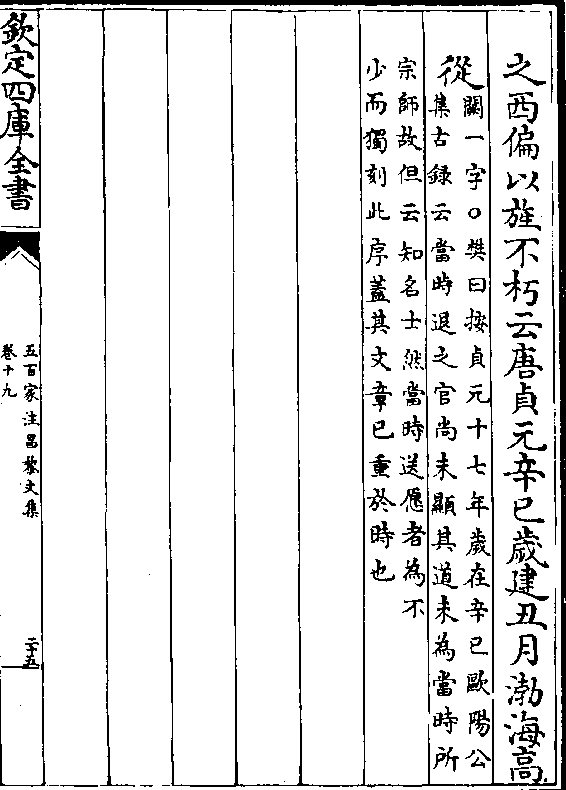 之西偏以旌不朽云唐貞元辛巳歲建丑月渤海高
從
闕一字○樊曰按貞元十七年歲在辛巳歐陽公
集古録云當時退之官尚未顯其道未為當時所
宗師故但云知名士然當時送愿者為不
少而獨刻此序蓋其文章已重於時也
欽定四庫全書
五百家注昌黎文集
卷十九
二十五